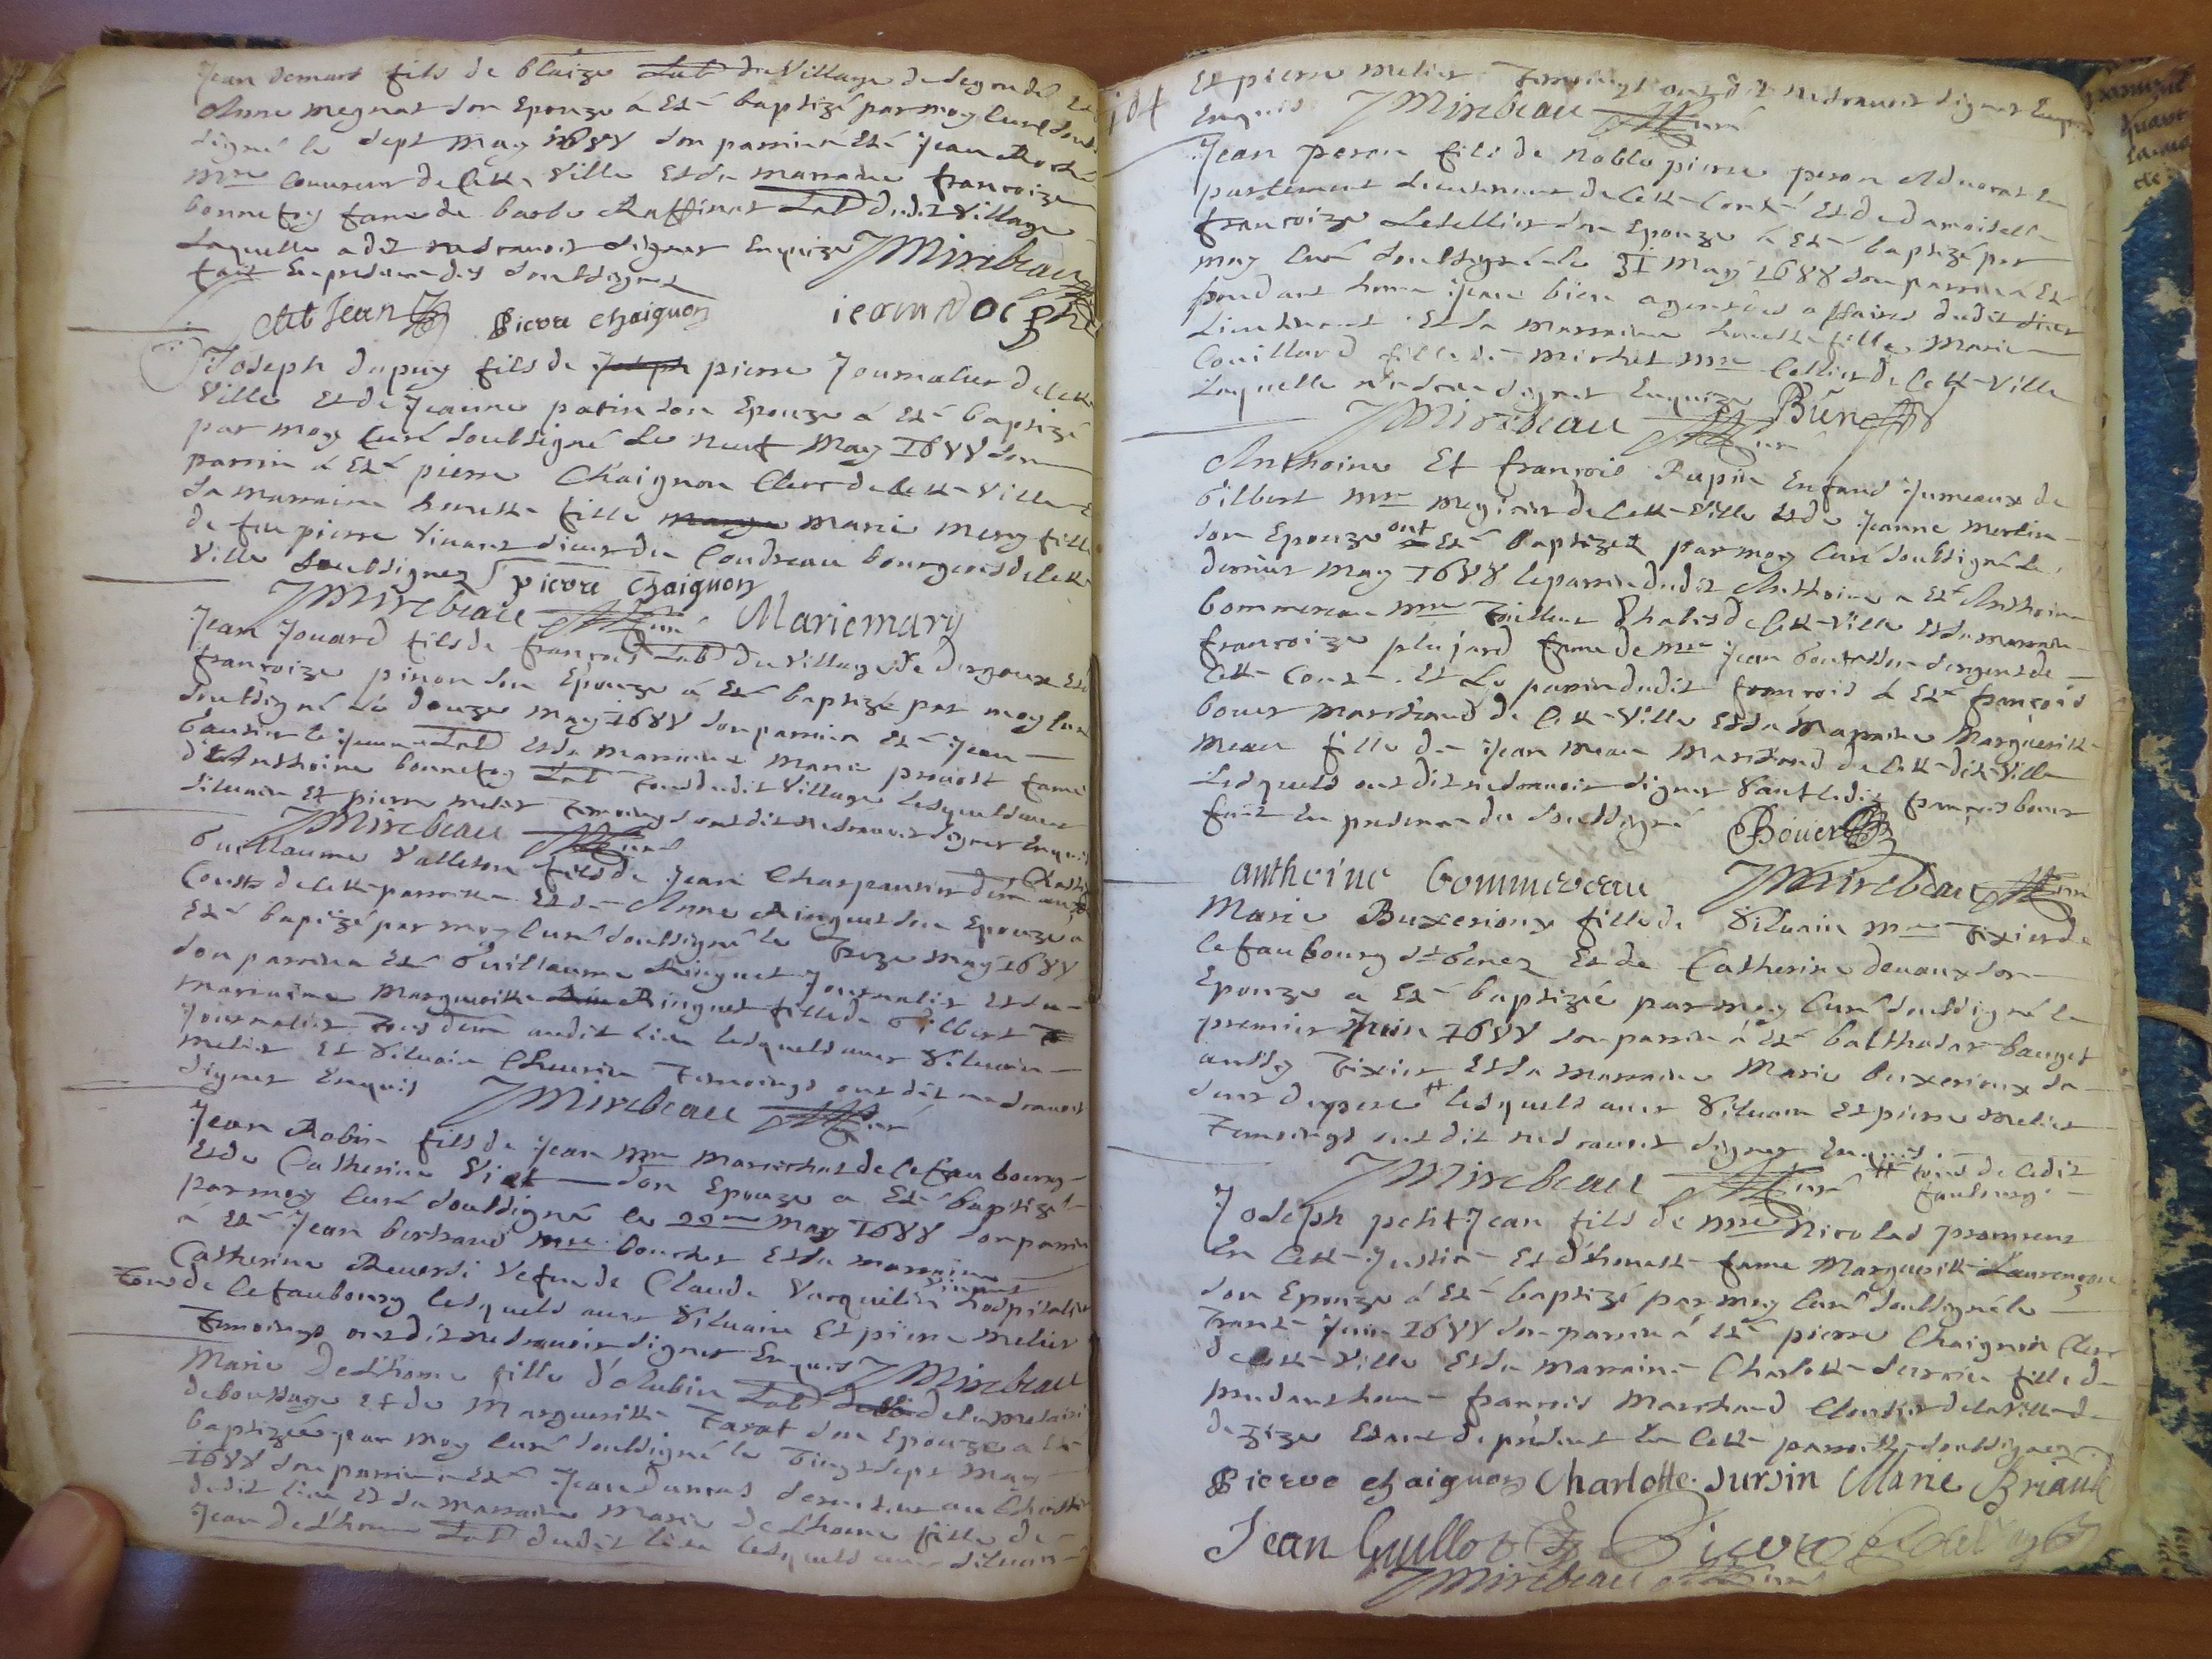 Jean demard fils de blaize Lab du Village de
Anne megnat son Epouze á Esté baptizé par moy Curé soub
signé le sept may 1688 son parrin á Esté Jean
mre Couureur de Cette Ville Et sa marraine françoize
bonnefoy fame de barbe Raffinat Lab dudit Village
Laquelle a dit ne scauoir signer Enquize JMirebeau
fait En presence des soubsignez
Jean Pierre Chaignon
Joseph dupuy fils de Joseph pierre Journalier de Cette
Ville Et de Jeanne patin son Epouze á Esté baptizé
par moy Curé soubsigné Le neuf May 1688 son
parrin á Esté pierre Chaignon Clerc de Cette Ville E
sa marraine honneste fille marye Marie Mery fille
de feu pierre Viuant sieur du Coudreau bourgeois de Cette
Ville Soubsignez Pierre Chaignon
JMirebeau Curé Marie mary
Jean Jouard fils de françois Lab du Village de dergoux Et de
françoize pinon son Epouze á Esté baptizé par moy Curé
soubsigné Le douze may 1688 son parrin a Esté Jean
Gautier le Jeune Lab Et sa marraine Marie preuost fame
d'Anthoine bonnefoy Lab Tous dudit Village lesquels auec
Siluain Et pierre melier Temoings ont dit ne scauoir signer Enquis
JMirebeau Curé
Guillaume Valleton fils de Jean Charpantier dem aux
Cousts de Cette parroisse Et de Anne Ringuet son Epouze a
Esté baptizé par moy Curé soubsigné le Treze may 1688
son parrin a Esté Guillaume Ringuet Journalier Et sa
marraine Marguerite Ringuet fille de Gilbert
Journalier Tous dem audit lieu lesquels auec Siluain
melier Et Siluain Cheurier Temoings ont dit ne scauoir
signer Enquis JMirebeau Curé
Jean Robin fils de Jean mre mareschal de Ce faubourg
Et de Catherine Viet son Epouze a Esté baptizé
par moy Curé soubsigné le 22me may 1688 son parrin
á Esté Jean bertrand mre boucher Et sa marraine
Catherine Reuerdi Vefue de Claude Vuquilin viuant hospitalier
Tous de Ce faubourg lesquels auec Siluain Et pierre melier
Temoings ont dit ne scauoir signer Enquis JMirebeau
Marie Deshome fille d'Aubin Lab de la metairie
de boussage Et de Marguerite Tarat son Epouze a Esté
baptizée par moy Curé soubsigné le Vingt sept may
1688 son parrin a Esté Jean dumas seruiteur au
dudit lieu Et sa marraine Marie Deshome fille de
Jean Deshome Lab dudit lieu lesquels auec Siluain
104
Et pierre melier Temoings ont dit ne scauoir signer
Enquis JMirebeau Curé
Jean peron fils de Noble pierre peron Aduocat En
parlement Lieutenant de Cette Conté Et de damoiselle
françoize Letellier son Epouze á Esté baptizé par
moy Curé soubsigné le 31 may 1688 son parrin a Esté
prudant home Jean bien agent des affaires dudit sieur
Lieutenant Et sa marraine honneste fille Marie
Couillard fille de Michel mre Cellier de Cette Ville
Laquelle ne scait signer Enquize Bien
JMirebeau Curé
Anthoine Et françois Rupin Enfans Jumeaux de
Gilbert mre megissier de Cette Ville Et de Jeanne Merlin
son Epouze ont Esté baptizez par moy Curé soubsigné Le
dernier may 1688 le parrin dudit Anthoine a Esté Anthoine
bommereau mre Tailleur d'habits de Cette Ville Et sa marraine
françoize plujard fame de mre Jean sergent de
Cette Conté Et Le parrin dudit françois á Esté françois
bouer marchand de Cette Ville Et sa Marraine Marguerite
meau fille de Jean meau Marchand de Cette dite Ville
Lesquels ont dit ne scauoir signer Sauf ledit françois bouer
fait En presence du soubsigné Boüer
antheine bommereau JMirebeau Curé
Marie Buxerioux fille de Siluain mre Tixier de
Ce faubourg st Genez Et de Catherine deuaux son
Epouze a Esté baptizée par moy Curé soubsigné le
premier Juin 1688 son parrin á Esté balthasar bauget
aussy Tixier Et sa marraine Marie buxerioux sa
seur du pere # lesquels auec Siluain Et pierre Melier
Temoings ont dit ne scauoir signer Enquis
JMirebeau Curé # tous de Cedit faubourg
Joseph petitJean fils de mre Nicolas procureur
En Cette Justice Et d'honneste fame Marguerite Laurençon
son Epouze á Esté baptizé par moy Curé soubsigné le
Trante Juin 1688 son parrin á Esté pierre Chaignon Clerc
de Cette Ville Et sa Marraine Charlotte sursin fille de
prudant home françois Marchand Cloutier de la Ville de
dezize Estant de present En Cette parroisse soubsignez
Pierre chaignon Charlotte sursin Marie Briault
Jean Guillot Pierre
JMirebeau Curé